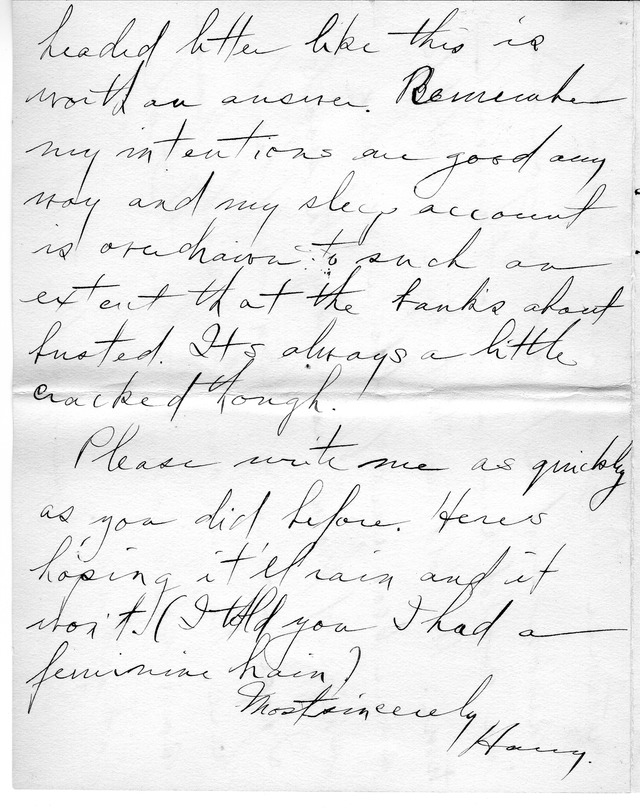 headed letter like this is
worth an answer. Remember
my intentions are good any
way and my sleep account
is overdrawn to such an
extent that the banks about
busted. Its always a little
cracked though.
Please write me as quickly
as you did before. Heres
hoping it'll rain and it
won't. (I told you I had a
feminine brain)
Most sincerely
Harry.